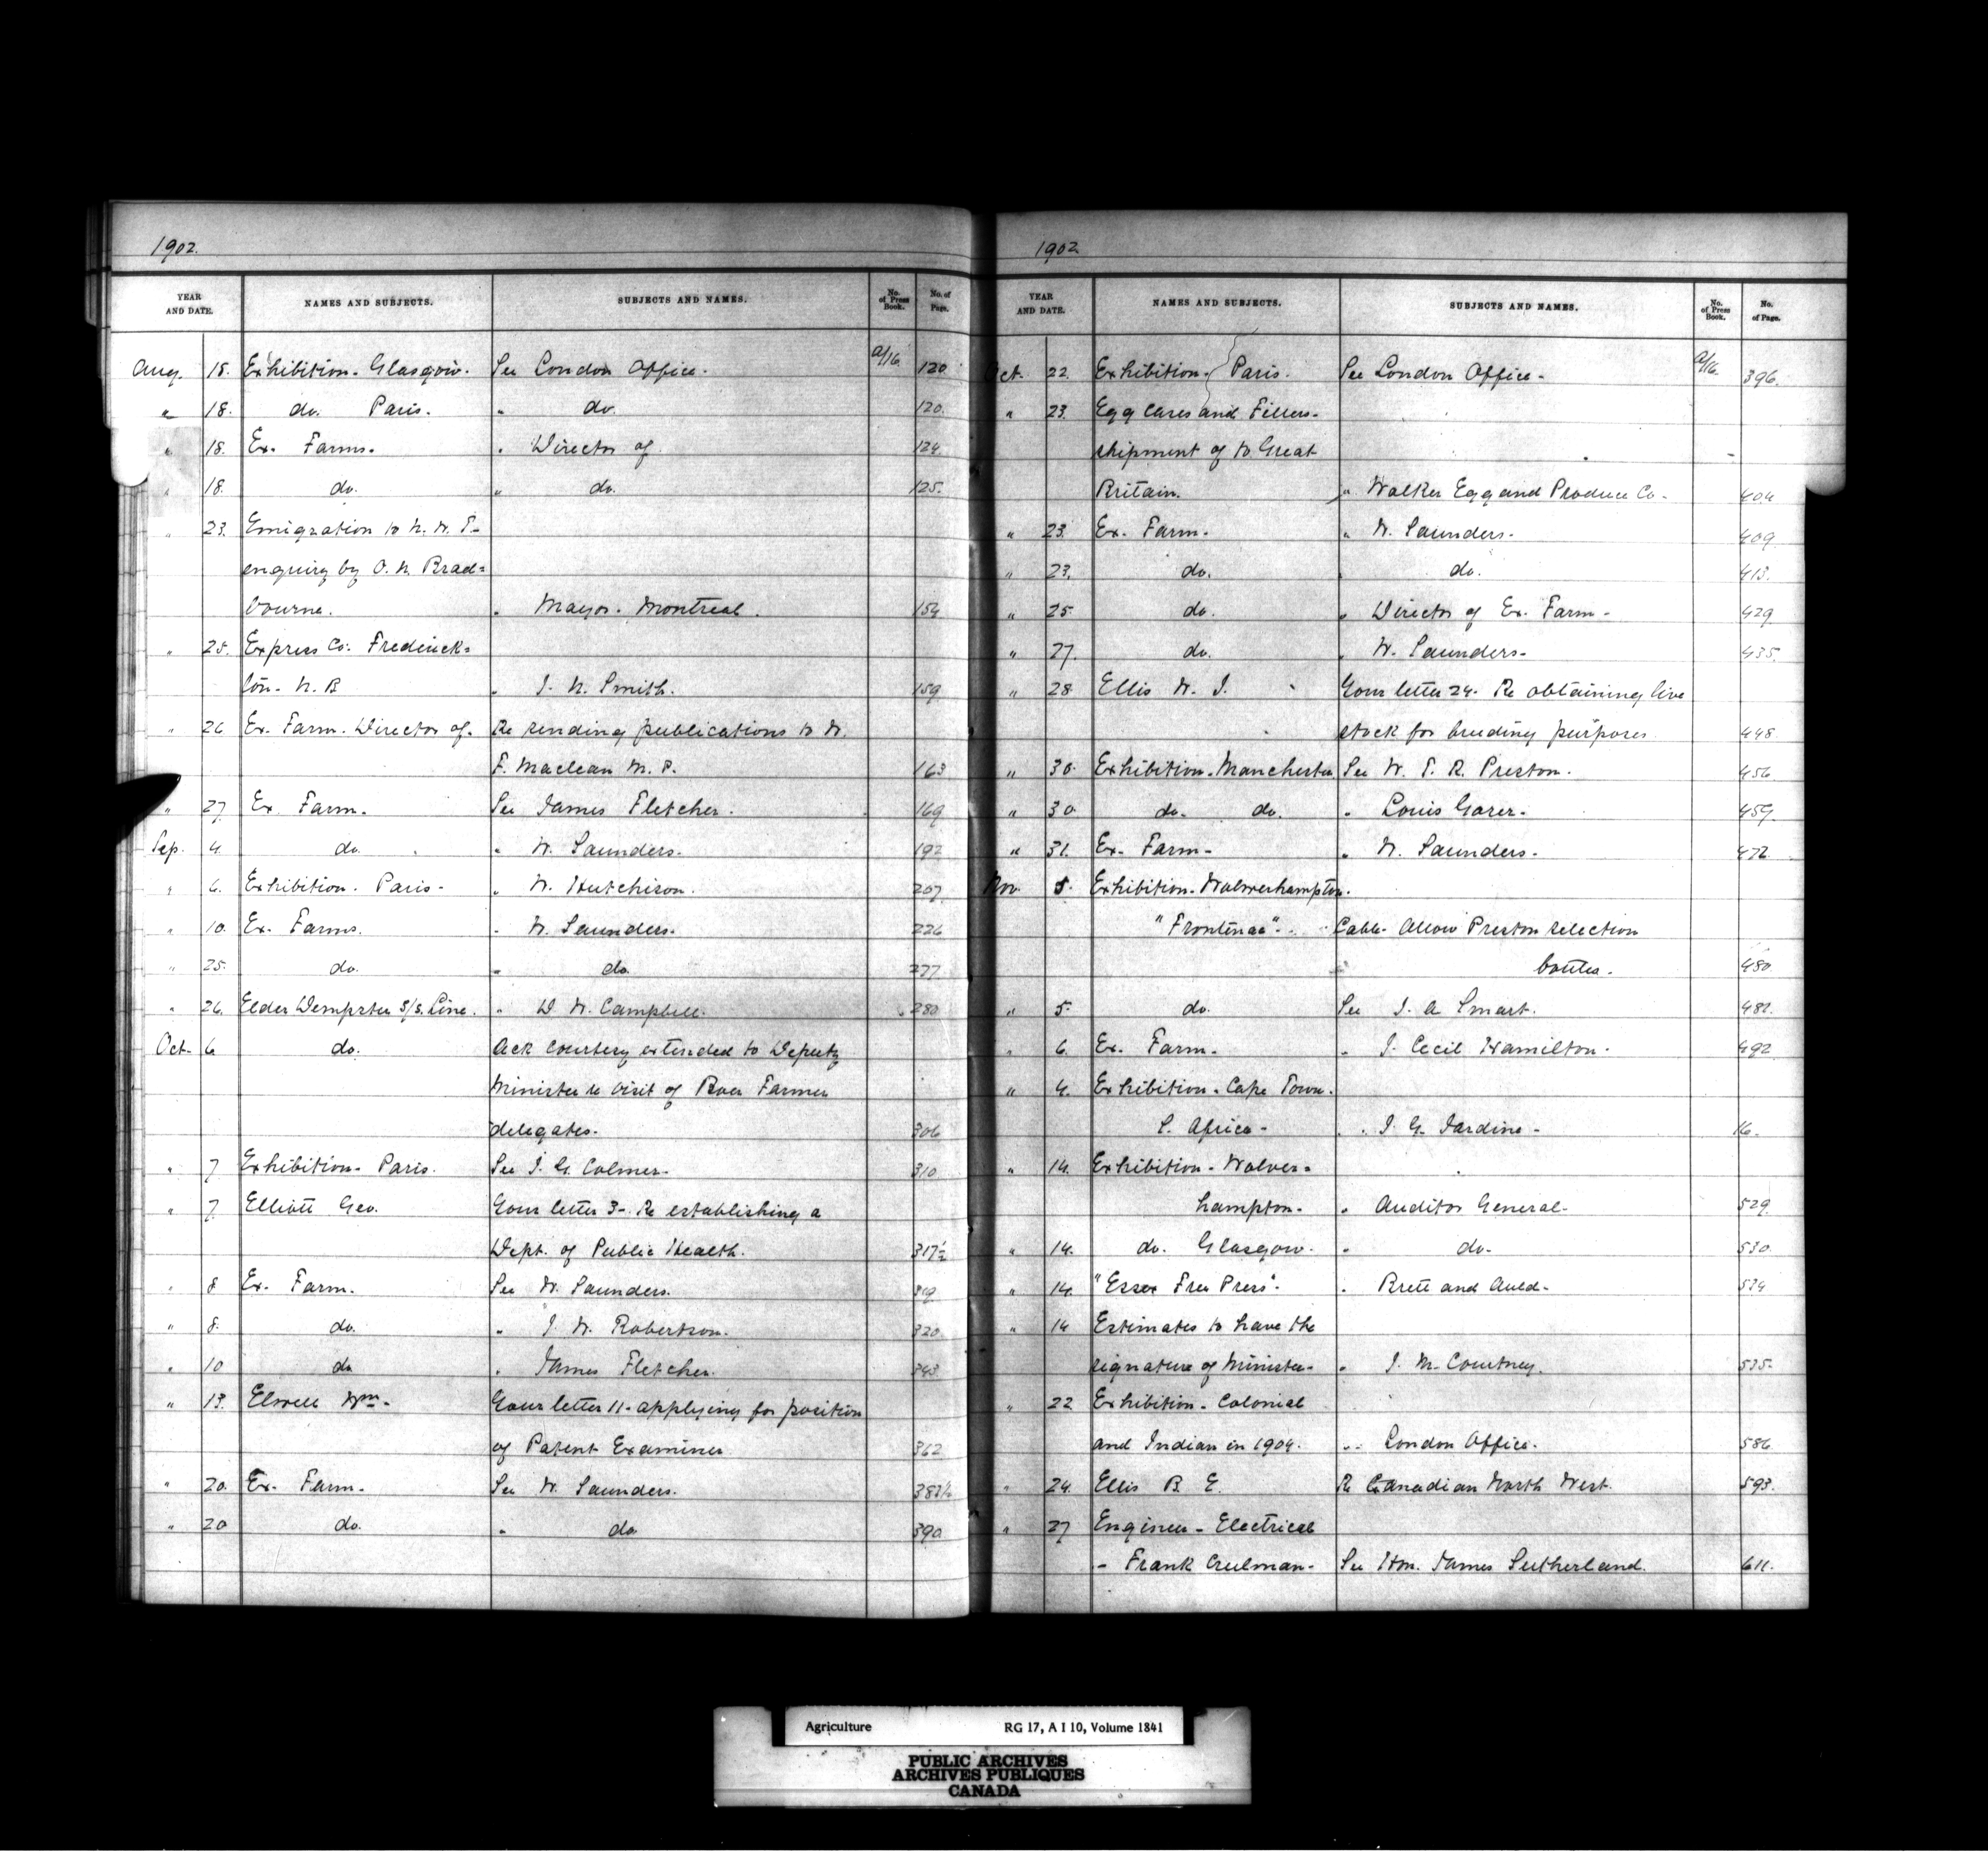 1902.
YEAR AND DATE. NAMES AND SUBJECTS. SUBJECTS AND NAMES. No. of Press Book. No. of Page.
Aug. 18. Exhibition - Glasgow. See London Office. a/16 120
" 18. do. Paris. " do. 120.
" 18. Ex. Farms. " Director of 124
" 18. do. " do. 125.
" 23. Emigration to N. W. T.
enquiry by O. N. Brad=
bourne. " Mayor. Montreal. 154
" 25. Express Co. Frederick=
ton. N. B " J. N. Smith. 159
" 26 Ex. Farm. Director of. Re sending publications to W.
F. Maclean M. P. 163
" 27 Ex Farm. See James Fletcher. 169
Sep. 4 do. " W. Saunders. 192
" 6. Exhibition. Paris- " W. Hutchison. 207
" 10. Ex. Farms. " W. Saunders. 226
" 25. do. " do. 277
" 26. Elder Dempster S/S. Line. " D W. Campbell. 280
Oct- 6 do. Ack courtesy extended to Deputy
Minister re visit of Boer Farmer
delegates. 306
" 7 Exhibition- Paris. See J. G. Colmer. 310
" 7. Elliott Geo. Your letter 3-. Re establishing a
Dept. of Public Health. 317½
" 8 Ex. Farm. See W. Saunders. 319
" 8. do. " J. W. Robertson. 320
" 10 do " James Fletcher. 343
" 13. Elwell Wm- Your letter 11- applying for position
of Patent Examiner 362
" 20. Ex- Farm. See W. Saunders. 383½
" 20 do. " do 390
1902
YEAR AND DATE. NAMES AND SUBJECTS. SUBJECTS AND NAMES. No. of Press Book. No. of Page.
Oct. 22 Exhibition. Paris. See London Office. a/16. 396.
" 23. Egg Cases and Fillers-
shipment of to Great
Britain. " Walker Egg and Produce Co. 404
" 23. Ex. Farm. " W. Saunders. 409
" 23. do. " do. 413.
" 25. do. " Director of Ex. Farm - 429
" 27. do. " W. Saunders. 435.
" 28 Ellis W. J. Your letter 24. Re obtaining live
stock for breeding purposes 448
" 30. Exhibition. Manchester See W. T. R. Preston. 456
" 30 do. do. " Louis 459.
" 31. Ex- Farm- " W. Saunders. 472.
Nov. 5. Exhibition. Wolverhampton.
"Frontenac" - Cable- Allow Preston selection
bottles. 480
" 5. do. See J. A. Smart. 481.
" 6. Ex. Farm. " J. Cecil Hamilton. 492
" 4. Exhibition - Cape Town.
S. Africa - " J. G. Jardine - 16.
" 14. Exhibition - Wolver=
hampton. " Auditor General- 529.
" 14. do. Glasgow. " do- 530
" 14. "Essex Free Press". " Brett and Auld- 534
" 14 Estimates to have the
signature of Minister- " J. M. Courtney. 535.
" 22 Exhibition - Colonial
and Indian in 1904. " London Office. 586
" 24. Ellis B. E. Re Canadian North West. 593.
" 27 Engineer - Electrical
- Frank - See Hon. James Sutherland. 611.
Agriculture RG 17, A I 10, Volume 1841
PUBLIC ARCHIVES
ARCHIVES PUBLIQUES
CANADA